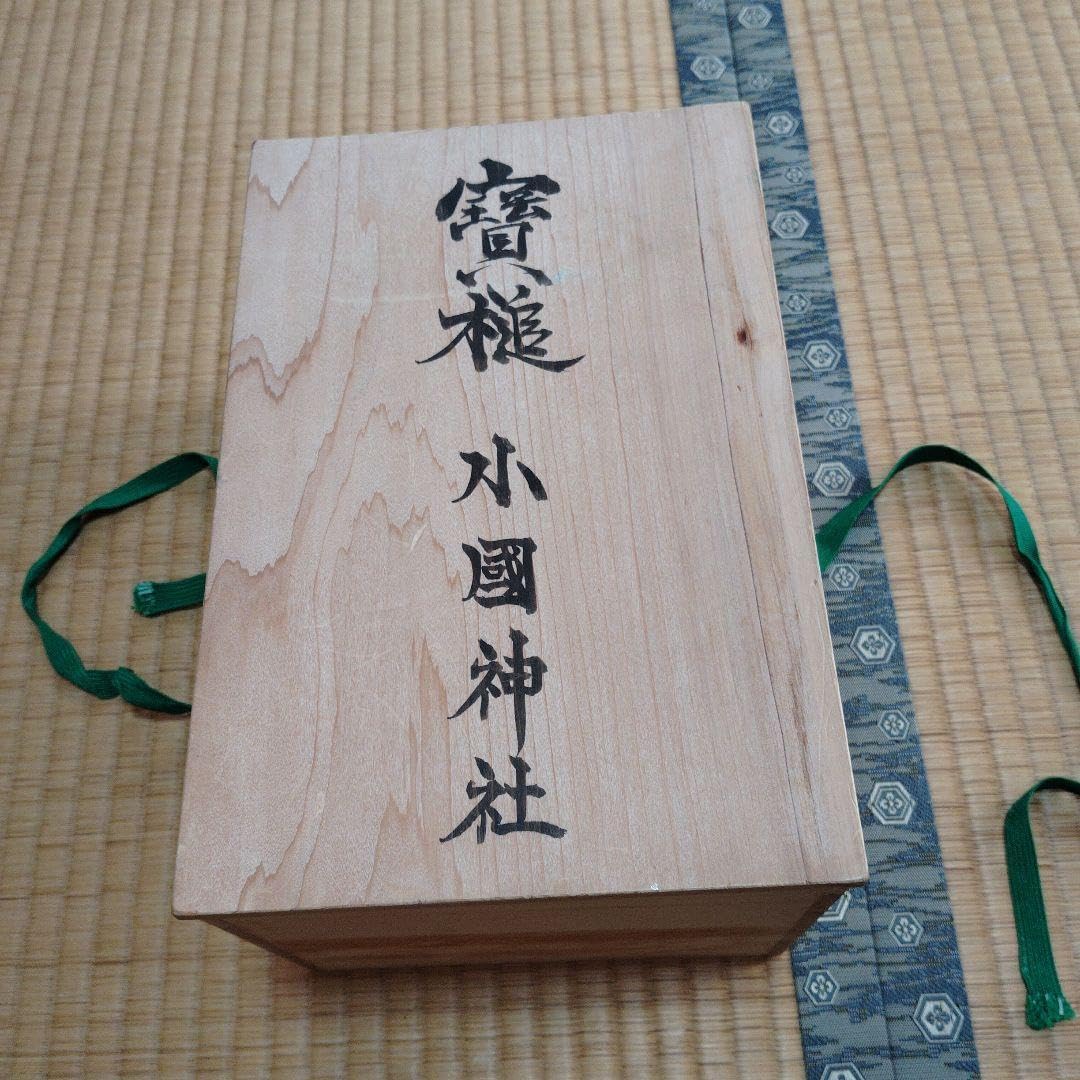 寶槌 小國神社